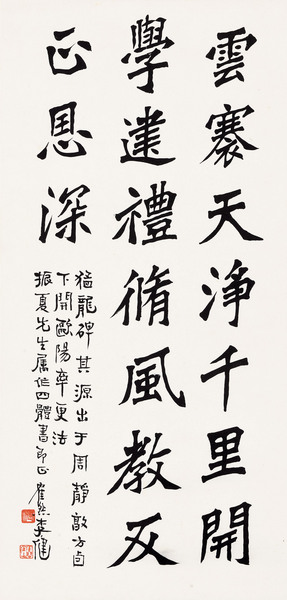 雲褰天淨千里開
學建禮脩風教反
正恩深
猛龍碑其源出于周靜敦方卣
下開歐陽率更法
振夏先生屬作四體書即正 隺然李健